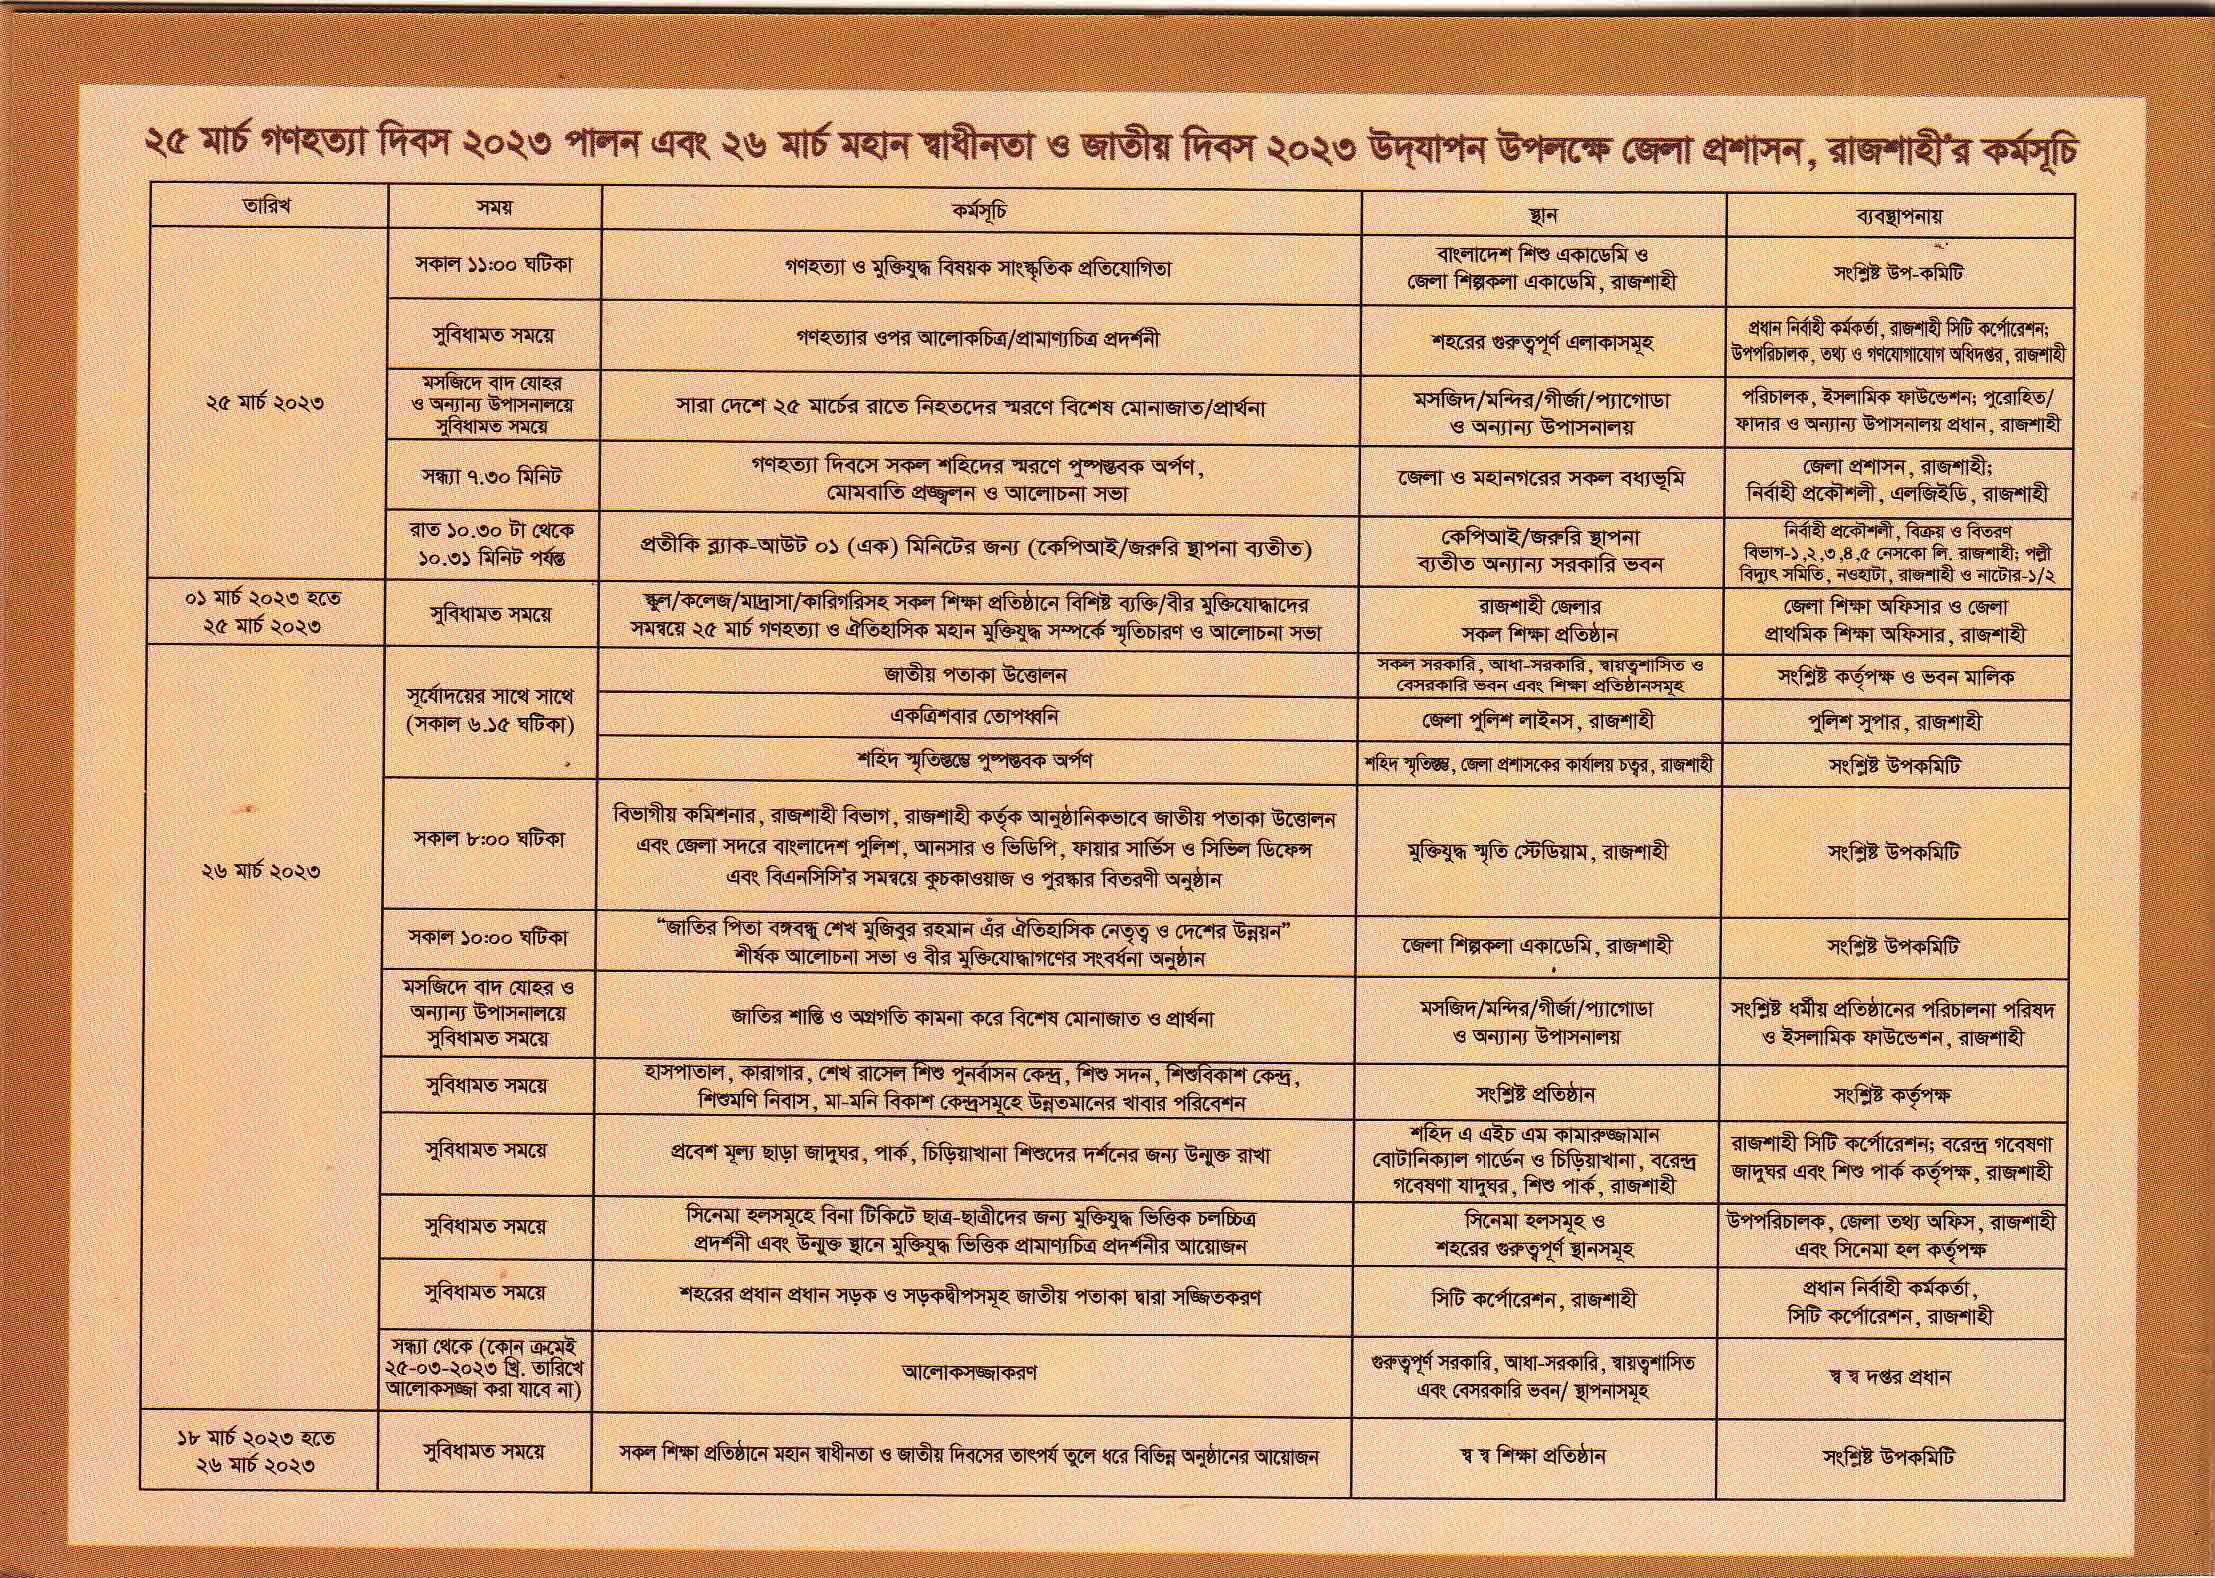 ২৫ মার্চ গণহত্যা দিবস ২০২৩ পালন এবং ২৬ মার্চ মহান স্বাধীনতা ও জাতীয় দিবস ২০২৩ উদ্‌যাপন উপলক্ষে জেলা প্রশাসন, রাজশাহী'র কর্মসূচি
তারিখ
সময়
কর্মসূচি
স্থান
ব্যবস্থাপনায়
২৫ মার্চ ২০২৩
সকাল ১১:০০ ঘটিকা
গণহত্যা ও মুক্তিযুদ্ধ বিষয়ক সাংস্কৃতিক প্রতিযোগিতা
বাংলাদেশ শিশু একাডেমি ও
জেলা শিল্পকলা একাডেমি, রাজশাহী
সংশ্লিষ্ট উপ-কমিটি
সুবিধামত সময়ে
গণহত্যার ওপর আলোকচিত্র/প্রামাণ্যচিত্র প্রদর্শনী
শহরের গুরুত্বপূর্ণ এলাকাসমূহ
প্রধান নির্বাহী কর্মকর্তা, রাজশাহী সিটি কর্পোরেশন;
উপপরিচালক, তথ্য ও গণযোগাযোগ অধিদপ্তর, রাজশাহী
মসজিদে বাদ যোহর
ও অন্যান্য উপাসনালয়ে
সুবিধামত সময়ে
সারা দেশে ২৫ মার্চের রাতে নিহতদের স্মরণে বিশেষ মোনাজাত/প্রার্থনা
মসজিদ/মন্দির/গীর্জা/প্যাগোডা
ও অন্যান্য উপাসনালয়
পরিচালক, ইসলামিক ফাউন্ডেশন; পুরোহিত/
ফাদার ও অন্যান্য উপাসনালয় প্রধান, রাজশাহী
সন্ধ্যা ৭.৩০ মিনিট
গণহত্যা দিবসে সকল শহিদের স্মরণে পুষ্পস্তবক অর্পণ,
মোমবাতি প্রজ্জ্বলন ও আলোচনা সভা
জেলা ও মহানগরের সকল বধ্যভূমি
জেলা প্রশাসন, রাজশাহী;
নির্বাহী প্রকৌশলী, এলজিইডি, রাজশাহী
রাত ১০.৩০ টা থেকে
১০.৩১ মিনিট পর্যন্ত
প্রতীকি ব্ল্যাক-আউট ০১ (এক) মিনিটের জন্য (কেপিআই/জরুরি স্থাপনা ব্যতীত)
কেপিআই/জরুরি স্থাপনা
ব্যতীত অন্যান্য সরকারি ভবন
নির্বাহী প্রকৌশলী, বিক্রয় ও বিতরণ
বিভাগ-১,২,৩,৪,৫ নেসকো লি. রাজশাহী; পল্লী
বিদ্যুৎ সমিতি, নওহাটা, রাজশাহী ও নাটোর-১/২
০১ মার্চ ২০২৩ হতে
২৫ মার্চ ২০২৩
সুবিধামত সময়ে
স্কুল/কলেজ/মাদ্রাসা/কারিগরিসহ সকল শিক্ষা প্রতিষ্ঠানে বিশিষ্ট ব্যক্তি/বীর মুক্তিযোদ্ধাদের
সমন্বয়ে ২৫ মার্চ গণহত্যা ও ঐতিহাসিক মহান মুক্তিযুদ্ধ সম্পর্কে স্মৃতিচারণ ও আলোচনা সভা
রাজশাহী জেলার
সকল শিক্ষা প্রতিষ্ঠান
জেলা শিক্ষা অফিসার ও জেলা
প্রাথমিক শিক্ষা অফিসার, রাজশাহী
২৬ মার্চ ২০২৩
সূর্যোদয়ের সাথে সাথে
(সকাল ৬.১৫ ঘটিকা)
জাতীয় পতাকা উত্তোলন
সকল সরকারি, আধা-সরকারি, স্বায়ত্বশাসিত ও
বেসরকারি ভবন এবং শিক্ষা প্রতিষ্ঠানসমূহ
সংশ্লিষ্ট কর্তৃপক্ষ ও ভবন মালিক
একত্রিশবার তোপধ্বনি
জেলা পুলিশ লাইনস, রাজশাহী
পুলিশ সুপার, রাজশাহী
শহিদ স্মৃতিস্তম্ভে পুষ্পস্তবক অর্পণ
শহিদ স্মৃতিস্তম্ভ, জেলা প্রশাসকের কার্যালয় চত্বর, রাজশাহী
সংশ্লিষ্ট উপকমিটি
সকাল ৮:০০ ঘটিকা
বিভাগীয় কমিশনার, রাজশাহী বিভাগ, রাজশাহী কর্তৃক আনুষ্ঠানিকভাবে জাতীয় পতাকা উত্তোলন
এবং জেলা সদরে বাংলাদেশ পুলিশ, আনসার ও ভিডিপি, ফায়ার সার্ভিস ও সিভিল ডিফেন্স
এবং বিএনসিসি'র সমন্বয়ে কুচকাওয়াজ ও পুরস্কার বিতরণী অনুষ্ঠান
মুক্তিযুদ্ধ স্মৃতি স্টেডিয়াম, রাজশাহী
সংশ্লিষ্ট উপকমিটি
সকাল ১০:০০ ঘটিকা
“জাতির পিতা বঙ্গবন্ধু শেখ মুজিবুর রহমান এঁর ঐতিহাসিক নেতৃত্ব ও দেশের উন্নয়ন”
শীর্ষক আলোচনা সভা ও বীর মুক্তিযোদ্ধাগণের সংবর্ধনা অনুষ্ঠান
জেলা শিল্পকলা একাডেমি, রাজশাহী
সংশ্লিষ্ট উপকমিটি
মসজিদে বাদ যোহর ও
অন্যান্য উপাসনালয়ে
সুবিধামত সময়ে
জাতির শান্তি ও অগ্রগতি কামনা করে বিশেষ মোনাজাত ও প্রার্থনা
মসজিদ/মন্দির/গীর্জা/প্যাগোডা
ও অন্যান্য উপাসনালয়
সংশ্লিষ্ট ধর্মীয় প্রতিষ্ঠানের পরিচালনা পরিষদ
ও ইসলামিক ফাউন্ডেশন, রাজশাহী
সুবিধামত সময়ে
হাসপাতাল, কারাগার, শেখ রাসেল শিশু পুনর্বাসন কেন্দ্র, শিশু সদন, শিশুবিকাশ কেন্দ্র,
শিশুমণি নিবাস, মা-মনি বিকাশ কেন্দ্রসমূহে উন্নতমানের খাবার পরিবেশন
সংশ্লিষ্ট প্রতিষ্ঠান
সংশ্লিষ্ট কর্তৃপক্ষ
সুবিধামত সময়ে
প্রবেশ মূল্য ছাড়া জাদুঘর, পার্ক, চিড়িয়াখানা শিশুদের দর্শনের জন্য উন্মুক্ত রাখা
শহিদ এ এইচ এম কামারুজ্জামান
বোটানিক্যাল গার্ডেন ও চিড়িয়াখানা, বরেন্দ্র
গবেষণা যাদুঘর, শিশু পার্ক, রাজশাহী
রাজশাহী সিটি কর্পোরেশন; বরেন্দ্র গবেষণা
জাদুঘর এবং শিশু পার্ক কর্তৃপক্ষ, রাজশাহী
সুবিধামত সময়ে
সিনেমা হলসমূহে বিনা টিকিটে ছাত্র-ছাত্রীদের জন্য মুক্তিযুদ্ধ ভিত্তিক চলচ্চিত্র
প্রদর্শনী এবং উন্মুক্ত স্থানে মুক্তিযুদ্ধ ভিত্তিক প্রামাণ্যচিত্র প্রদর্শনীর আয়োজন
সিনেমা হলসমূহ ও
শহরের গুরুত্বপূর্ণ স্থানসমূহ
উপপরিচালক, জেলা তথ্য অফিস, রাজশাহী
এবং সিনেমা হল কর্তৃপক্ষ
সুবিধামত সময়ে
শহরের প্রধান প্রধান সড়ক ও সড়কদ্বীপসমূহ জাতীয় পতাকা দ্বারা সজ্জিতকরণ
সিটি কর্পোরেশন, রাজশাহী
প্রধান নির্বাহী কর্মকর্তা,
সিটি কর্পোরেশন, রাজশাহী
সন্ধ্যা থেকে (কোন ক্রমেই
২৫-০৩-২০২৩ খ্রি. তারিখে
আলোকসজ্জা করা যাবে না)
আলোকসজ্জাকরণ
গুরুত্বপূর্ণ সরকারি, আধা-সরকারি, স্বায়ত্বশাসিত
এবং বেসরকারি ভবন/ স্থাপনাসমূহ
স্ব স্ব দপ্তর প্রধান
১৮ মার্চ ২০২৩ হতে
২৬ মার্চ ২০২৩
সুবিধামত সময়ে
সকল শিক্ষা প্রতিষ্ঠানে মহান স্বাধীনতা ও জাতীয় দিবসের তাৎপর্য তুলে ধরে বিভিন্ন অনুষ্ঠানের আয়োজন
স্ব স্ব শিক্ষা প্রতিষ্ঠান
সংশ্লিষ্ট উপকমিটি